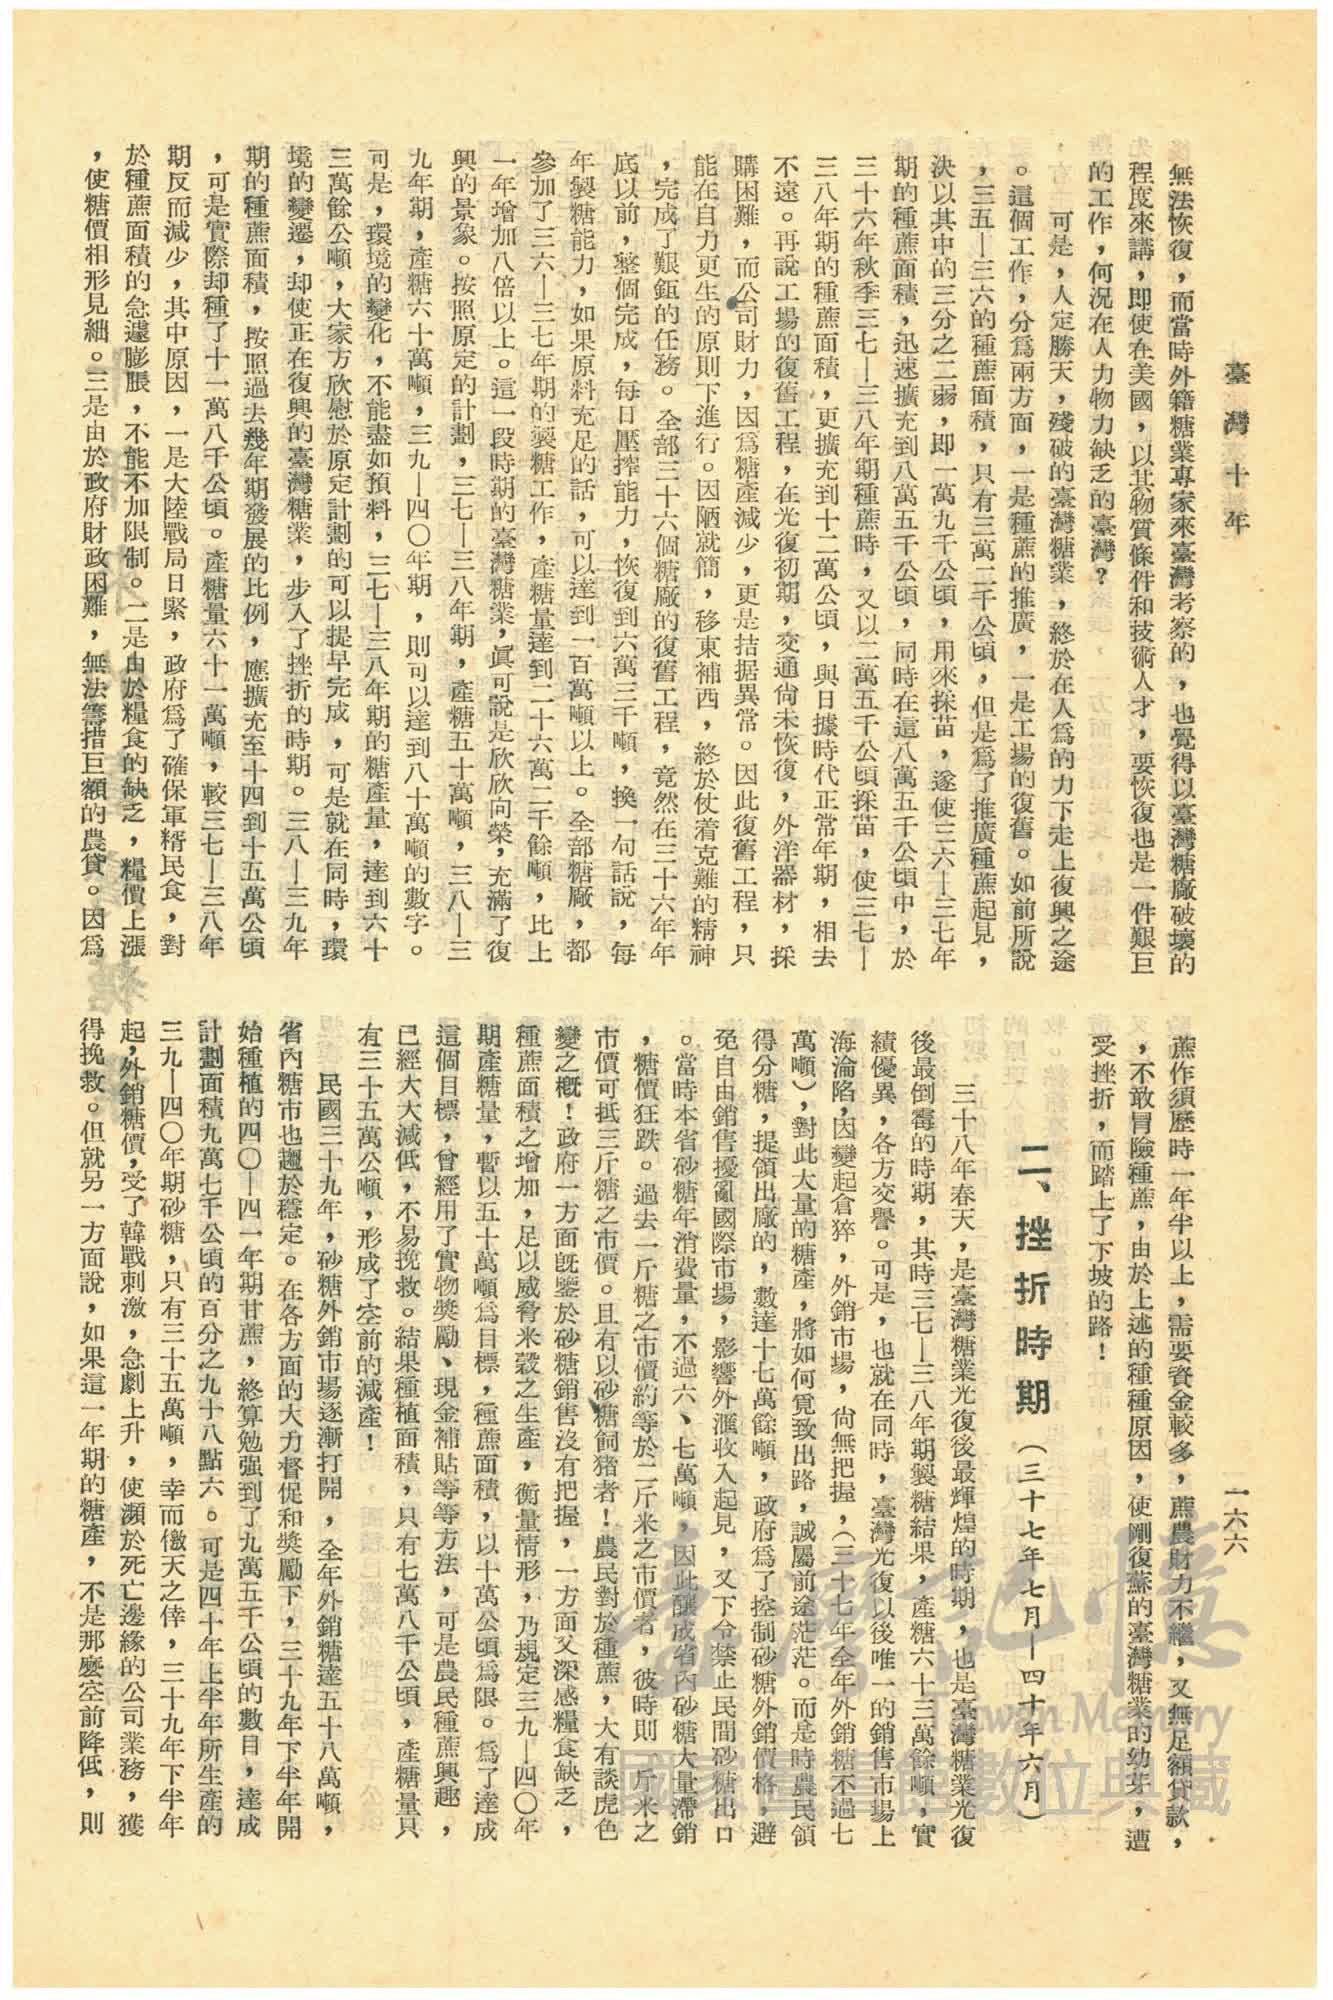 臺灣十年
一六六
無法恢復，而當時外籍糖業專家來臺灣考察的，也覺得以臺灣糖廠破壞的
程度來講，卽使在美國，以其物質條件和技術人才，要恢復也是一件艱巨
的工作，何況在人力物力缺乏的臺灣？
可是，人定勝天，殘破的臺灣糖業，終於在人爲的力下走上復興之途
。這個工作，分爲兩方面，一是種蔗的推廣，一是工場的復舊。如前所說
，三五—三六的種蔗面積，只有三萬二千公頃，但是爲了推廣種蔗起見，
決以其中的三分之二弱，卽一萬九千公頃，用來採苗，遂使三六—三七年
期的種蔗面積，迅速擴充到八萬五千公頃，同時在這八萬五千公頃中，於
三十六年秋季三七—三八年期種蔗時，又以二萬五千公頃採苗，使三七—
三八年期的種蔗面積，更擴充到十二萬公頃，與日據時代正常年期，相去
不遠。再說工場的復舊工程，在光復初期，交通尙未恢復，外洋器材，採
購困難，而公司財力，因爲糖產減少，更是拮据異常。因此復舊工程，只
能在自力更生的原則下進行。因陋就簡，移東補西，終於仗着克難的精神
，完成了艱鉅的任務。全部三十六個糖廠的復舊工程，竟然在三十六年年
底以前，整個完成，每日壓搾能力，恢復到六萬三千噸，換一句話說，每
年製糖能力，如果原料充足的話，可以達到一百萬噸以上。全部糖廠，都
參加了三六—三七年期的製糖工作，產糖量達到二十六萬二千餘噸，比上
一年增加八倍以上。這一段時期的臺灣糖業，眞可說是欣欣向榮，充滿了復
興的景象。按照原定的計劃，三七—三八年期，產糖五十萬噸，三八—三
九年期，產糖六十萬噸，三九—四〇年期，則可以達到八十萬噸的數字。
可是，環境的變化，不能盡如預料，三七—三八年期的糖產量，達到六十
三萬餘公噸，大家方欣慰於原定計劃的可以提早完成，可是就在同時，環
境的變遷，却使正在復興的臺灣糖業，步入了挫折的時期。三八—三九年
期的種蔗面積，按照過去幾年期發展的比例，應擴充至十四到十五萬公頃
，可是實際却種了十一萬八千公頃。產糖量六十一萬噸，較三七—三八年
期反而減少，其中原因，一是大陸戰局日緊，政府爲了確保軍糈民食，對
於種蔗面積的急遽膨脹，不能不加限制。二是由於糧食的缺乏，糧價上漲
，使糖價相形見絀。三是由於政府財政困難，無法籌措巨額的農貸。因爲
蔗作須歷時一年半以上，需要資金較多，蔗農財力不繼，又無足額貸款，
，不敢冒險種蔗，由於上述的種種原因，使剛復蘇的臺灣糖業的幼芽，遭
受挫折，而踏上了下坡的路！
二、挫折時期（三十七年七月—四十年六月）
三十八年春天，是臺灣糖業光復後最輝煌的時期，也是臺灣糖業光復
後最倒霉的時期，其時三七—三八年期製糖結果，產糖六十三萬餘噸，實
績優異，各方交譽。可是，也就在同時，臺灣光復以後唯一的銷售市場上
海淪陷，因變起倉猝，外銷市場，尙無把握，（三十七年全年外銷糖不過七
萬噸），對此大量的糖產，將如何覓致出路，誠屬前途茫茫。而是時農民領
得分糖，提領出廠的，數達十七萬餘噸，政府爲了控制砂糖外銷價格，避
免自由銷售擾亂國際市場，影響外滙收入起見，又下令禁止民間砂糖出口
。當時本省砂糖年消費量，不過六、七萬噸，因此釀成省內砂糖大量滯銷
，糖價狂跌。過去一斤糖之市價約等於二斤米之市價者，彼時則一斤米之
市價可抵三斤糖之市價。且有以砂糖飼猪者！農民對於種蔗，大有談虎色
變之槪！政府一方面旣鑒於砂糖銷售沒有把握，一方面又深感糧食缺乏，
種蔗面積之增加，足以威脅米穀之生產，衡量情形，乃規定三九—四〇年
期產糖量，暫以五十萬噸爲目標，種蔗面積，以十萬公頃爲限。爲了達成
這個目標，曾經用了實物獎勵、現金補貼等等方法，可是農民種蔗興趣，
已經大大減低，不易挽救。結果種植面積，只有七萬八千公頃，產糖量只
有三十五萬公噸，形成了空前的減產！
民國三十九年，砂糖外銷市場逐漸打開，全年外銷糖達五十八萬噸，
省內糖市也趨於穩定。在各方面的大力督促和獎勵下，三十九年下半年開
始種植的四〇—四一年期甘蔗，終算勉强到了九萬五千公頃的數目，達成
計劃面積九萬七千公頃的百分之九十八點六。可是四十年上半年所生產的
三九—四〇年期砂糖，只有三十五萬噸，幸而儌天之倖，三十九年下半年
起，外銷糖價，受了韓戰刺激，急劇上升，使瀕於死亡邊緣的公司業務，獲
得挽救。但就另一方面說，如果這一年期的糖產，不是那麼空前降低，則
臺灣記憶
Taiwan Memory
國家圖書館數位典藏